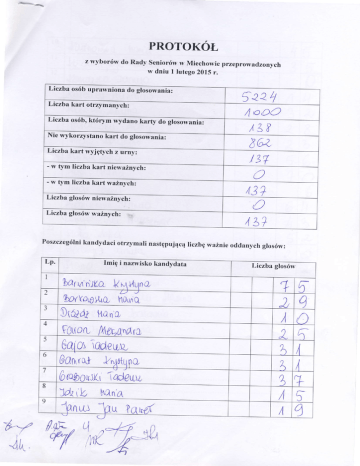 PROTOKÓŁ
z wyborów do Rady Seniorów w Miechowie przeprowadzonych
w dniu 1 lutego 2015 r.
Liczba osób uprawniona do głosowania: 5224
Liczba kart otrzymanych: 1000
Liczba osób, którym wydano karty do głosowania: 138
Nie wykorzystano kart do głosowania: 862
Liczba kart wyjętych z urny: 137
- w tym liczba kart nieważnych: 0
- w tym liczba kart ważnych: 137
Liczba głosów nieważnych: 0
Liczba głosów ważnych: 137
Poszczególni kandydaci otrzymali następującą liczbę ważnie oddanych głosów:
Lp. Imię i nazwisko kandydata Liczba głosów
1 Krystyna 75
2 Maria 29
3 Maria 10
4 25
5 Gajos Tadeusz 31
6 Krystyna 31
7 Grabowski Tadeusz 37
8 Maria 15
9 Janus Jan Paweł 19